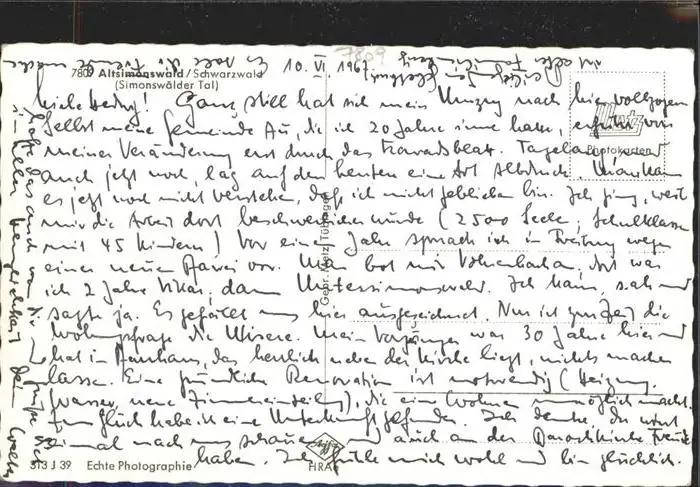 7809 Altsimonswald / Schwarzwald
(Simonswälder Tal)
7809
10. VI. 1967
Liebe Hedy! Ganz still hat sich mein Umzug nach hier vollzogen
Selbst meine Gemeinde Au, die ich 20 Jahre inne hatte, erfuhr von
meiner Veränderung erst durch das Konradsblatt. Tagelang und
auch jetzt noch, lag auf den Leuten eine Art Albdruck. Man kann
es jetzt noch nicht verstehen, daß ich nicht geblieben bin. Ich ging, weil
mir die Arbeit dort beschwerlich wurde (2500 Seelen, Schulklasse
mit 45 Kindern) Vor einem Jahr sprach ich in Freiburg wegen
einer neuen Pfarrei vor. Man bot mir an, dort war
ich 2 Jahre Vikar, dann Untersimonswald. Ich kam, sah und
sagte ja. Es gefällt mir hier ausgezeichnet. Nur ist zur Zeit die
Wohnungsfrage die Misere. Mein Vorgänger war 30 Jahre hier und
hat im Pfarrhaus, das herrlich neben der Kirche liegt, nichts machen
lassen. Eine gründliche Renovation ist notwendig (Heizung,
Wasser, neue Zimmereinteilung), die ein Wohnen unmöglich macht.
Zum Glück habe ich eine Unterkunft gefunden. Ich denke, du wirst
einmal nach mir schauen und auch an der Barockkirche Freude
haben. Ich fühle mich wohl und bin glücklich.
Gebr. Metz, Tübingen
Metz
Photokarten
313 J 39 Echte Photographie
HRA